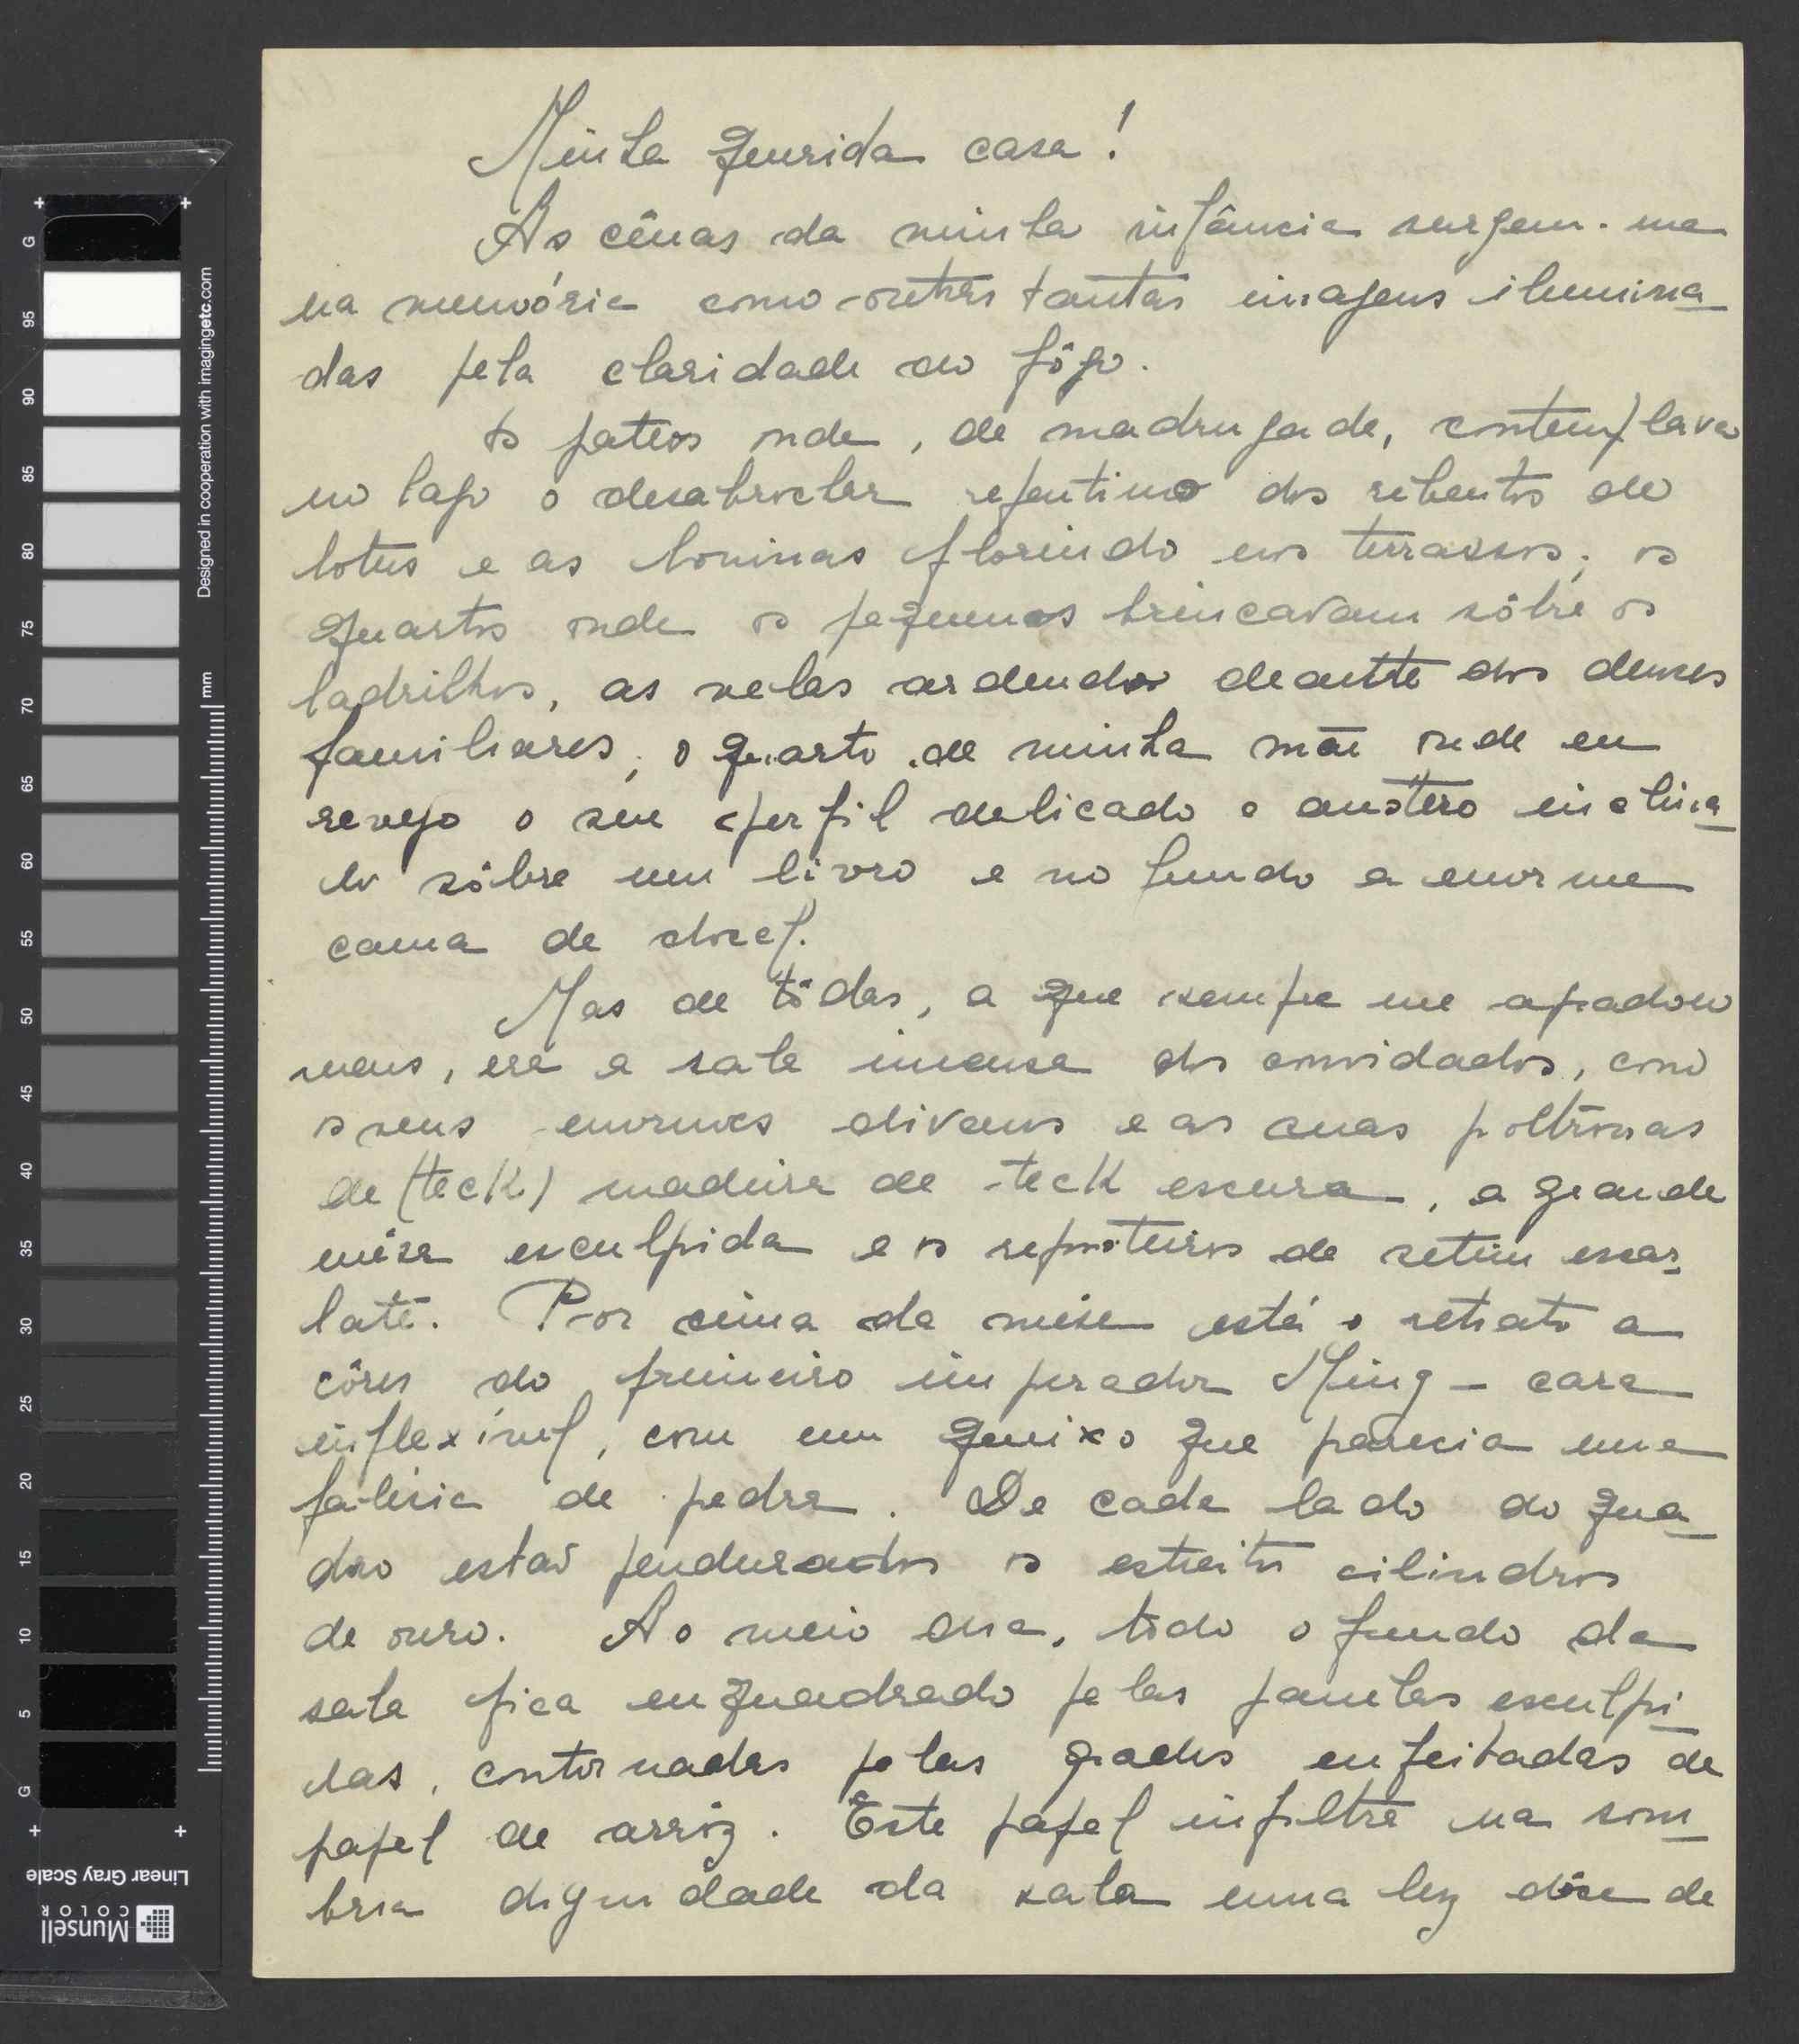 Minha querida casa!
As cênas da minha infância surgem-me
na memória como outras tantas imagens ilumina
das pela claridade do fôgo.
Os pateos onde, de madrugada, contemplava
no lago o desabrochar repentino dos rebentos do
lotus e as boninas florindo nos terrassos; os
quartos onde os pequenos brincavam sôbre os
ladrilhos, as velas ardendo deante dos deuses
familiares; o quarto de minha mãe onde eu
revejo o seu perfil delicado e austero inclina
do sôbre um livro e no fundo a enorme
cama de docel.
Mas de tôdas, a que sempre me agradou
mais, era a sala imensa dos convidados, com
os seus enormes divans e as suas poltronas
de (teck) madeira de teck escura, a grande
mêsa esculpida e os reposteiros de setim escar
late. Por cima da mêsa está o retrato a
côres do primeiro imperador Ming - cara
inflexível, com um queixo que parecia uma
falésia de pedra. De cada lado do qua
dro estão pendurados os estreitos cilindros
de ouro. Ao meio dia, todo o fundo da
sala fica enquadrado pelas janelas esculpi
das, contornadas pelas grades enfeitadas de
papel de arroz. Êste papel infiltra na som
bria dignidade da sala uma luz dôce de
G
95
90
85
80
75
70
65
60
55
50
45
40
35
30
25
20
15
10
5
G
Designed in cooperation with imagingetc.com
mm
Linear Gray Scale
Munsell
COLOR